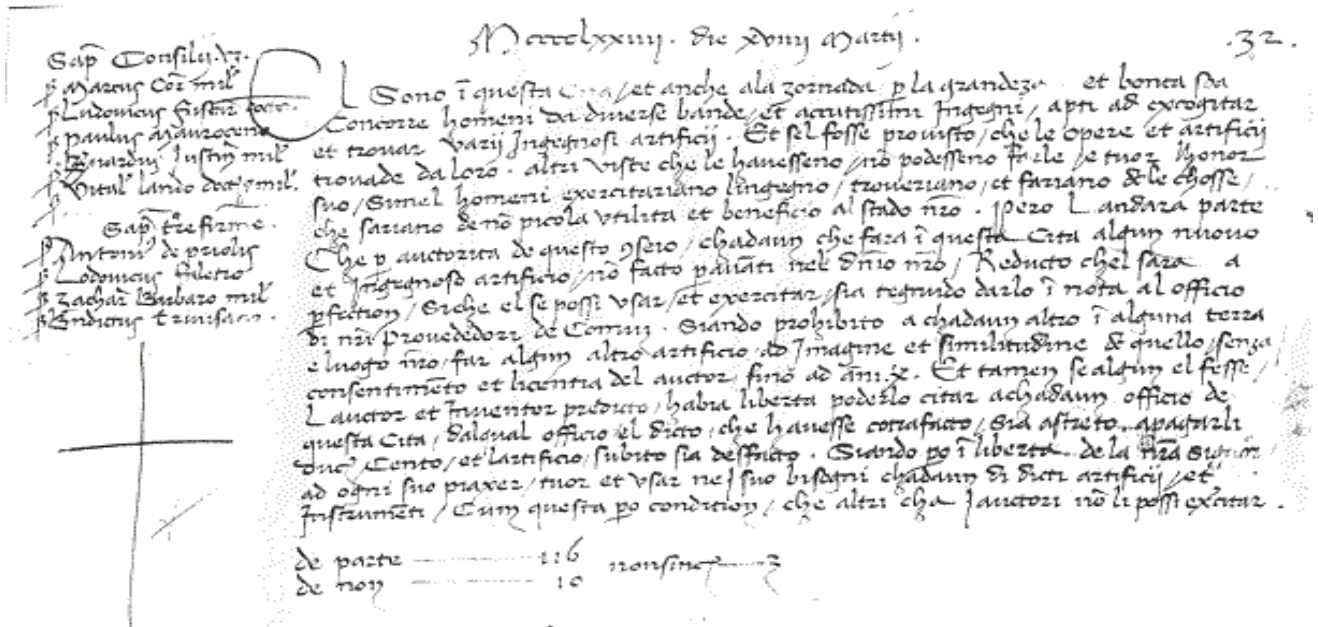 Mcccclxxiiij. die xviiij Martij.
.32.
Sap Consilij.
p Marcus Cor mil
p Ludovicus
p Paulus Mauroceno
p Justin mil
p Vital lando mil
Sap tre firme.
p Antoni de priolis
p Lodovicus
p Zachar Barbaro mil
p
EL Sono ī questa Cita, et anche ala zornada p la grandeza et bonta soa
Concorre homeni da diverse bande, et acutissimi Ingegni, apti ad excogitar
et trovar varij Ingegnosi artificij. Et sel fosse provisto, che le opere et artificij
trovade da loro. altri viste che le havesseno, nō podesseno farle, e tuor lhonor
suo, simel homeni exercitariano lingegno, troveriano, et fariano de le chosse,
che sariano de nō picola utilita et beneficio al stado nr̄o. Pero Landara parte
Che p auctorita de questo 9seio, chadaun che fara ī questa Cita algun nuovo
et Ingegnoso artificio, nō facto pavanti nel dn̄io nr̄o, Reducto chel sara a
pfection, Siche el se possi usar, et exercitar, sia tegnudo darlo ī nota al officio
di nr̄i Provededori de Comun. Siando prohibito a chadaun altro ī alguna terra
e luogo nr̄o, far algun altro artificio, ad Imagine et similitudine de quello, senza
consentimēto et licentia del auctor, fino ad ani .x. Et tamen se algun el fesse,
Lauctor et Inventor predicto, habia liberta poderlo citar a chadaun officio de
questa Cita, dalqual officio el dicto, che havesse cōtrafacto, Sia astreto, apagarli
duc Cento, et lartificio, subito sia desfacto. Siando po ī liberta de la nr̄a
ad ogni suo piaxer, tuor et usar nei suo bisogni chadaun di dicti artificij, et
Instrumēti, Cum questa po condition, che altri cha I auctori nō li possi exercitar.
de parte 116
de non 10
non sincere 3